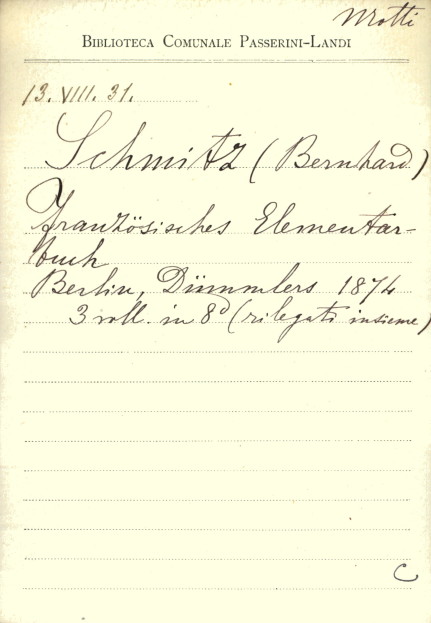 Mrotti
BIBLIOTECA COMUNALE PASSERINI-LANDI
13. VIII. 31.
Schmitz (Bernhard)
Französisches Elementar-
buch
Berlin, Dümmlers 1874
3 voll. in 8° (rilegati insieme)
C